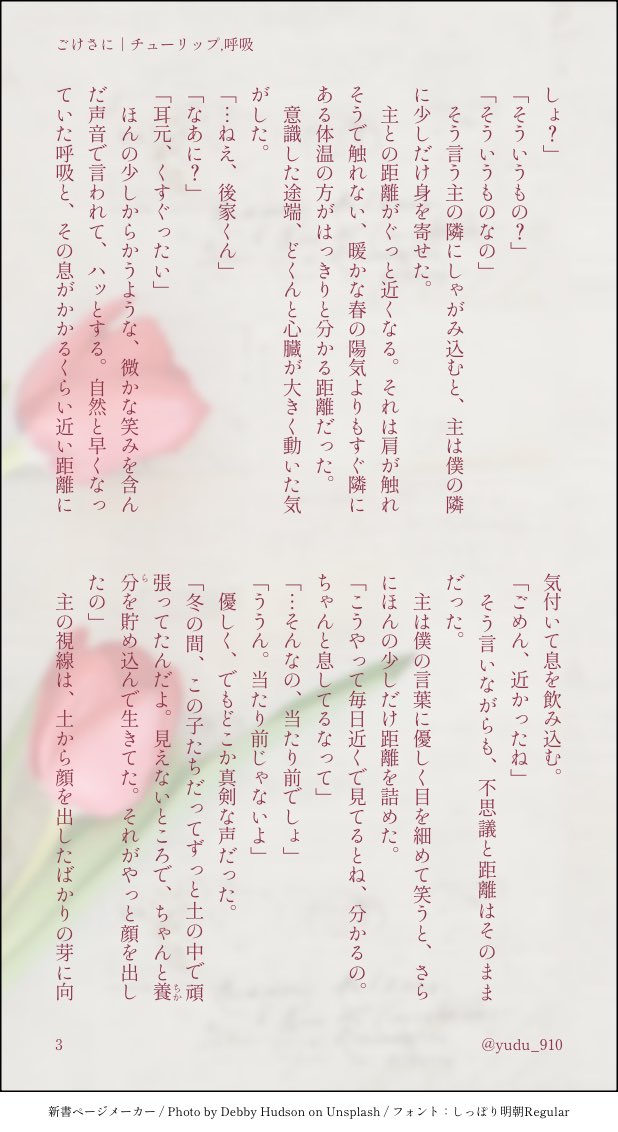 ごけさに｜チューリップ,呼吸
しょ？」
「そういうもの？」
「そういうものなの」
　そう言う主の隣にしゃがみ込むと、主は僕の隣
に少しだけ身を寄せた。
　主との距離がぐっと近くなる。それは肩が触れ
そうで触れない、暖かな春の陽気よりもすぐ隣に
ある体温の方がはっきりと分かる距離だった。
　意識した途端、どくんと心臓が大きく動いた気
がした。
「…ねえ、後家くん」
「なあに？」
「耳元、くすぐったい」
　ほんの少しからかうような、微かな笑みを含ん
だ声音で言われて、ハッとする。自然と早くなっ
ていた呼吸と、その息がかかるくらい近い距離に
気付いて息を飲み込む。
「ごめん、近かったね」
　そう言いながらも、不思議と距離はそのまま
だった。
　主は僕の言葉に優しく目を細めて笑うと、さら
にほんの少しだけ距離を詰めた。
「こうやって毎日近くで見てるとね、分かるの。
ちゃんと息してるなって」
「…そんなの、当たり前でしょ」
「ううん。当たり前じゃないよ」
　優しく、でもどこか真剣な声だった。
「冬の間、この子たちだってずっと土の中で頑
張ってたんだよ。見えないところで、ちゃんと養ちか
分らを貯め込んで生きてた。それがやっと顔を出し
たの」
　主の視線は、土から顔を出したばかりの芽に向
3
@yudu_910
新書ページメーカー / Photo by Debby Hudson on Unsplash / フォント：しっぽり明朝Regular